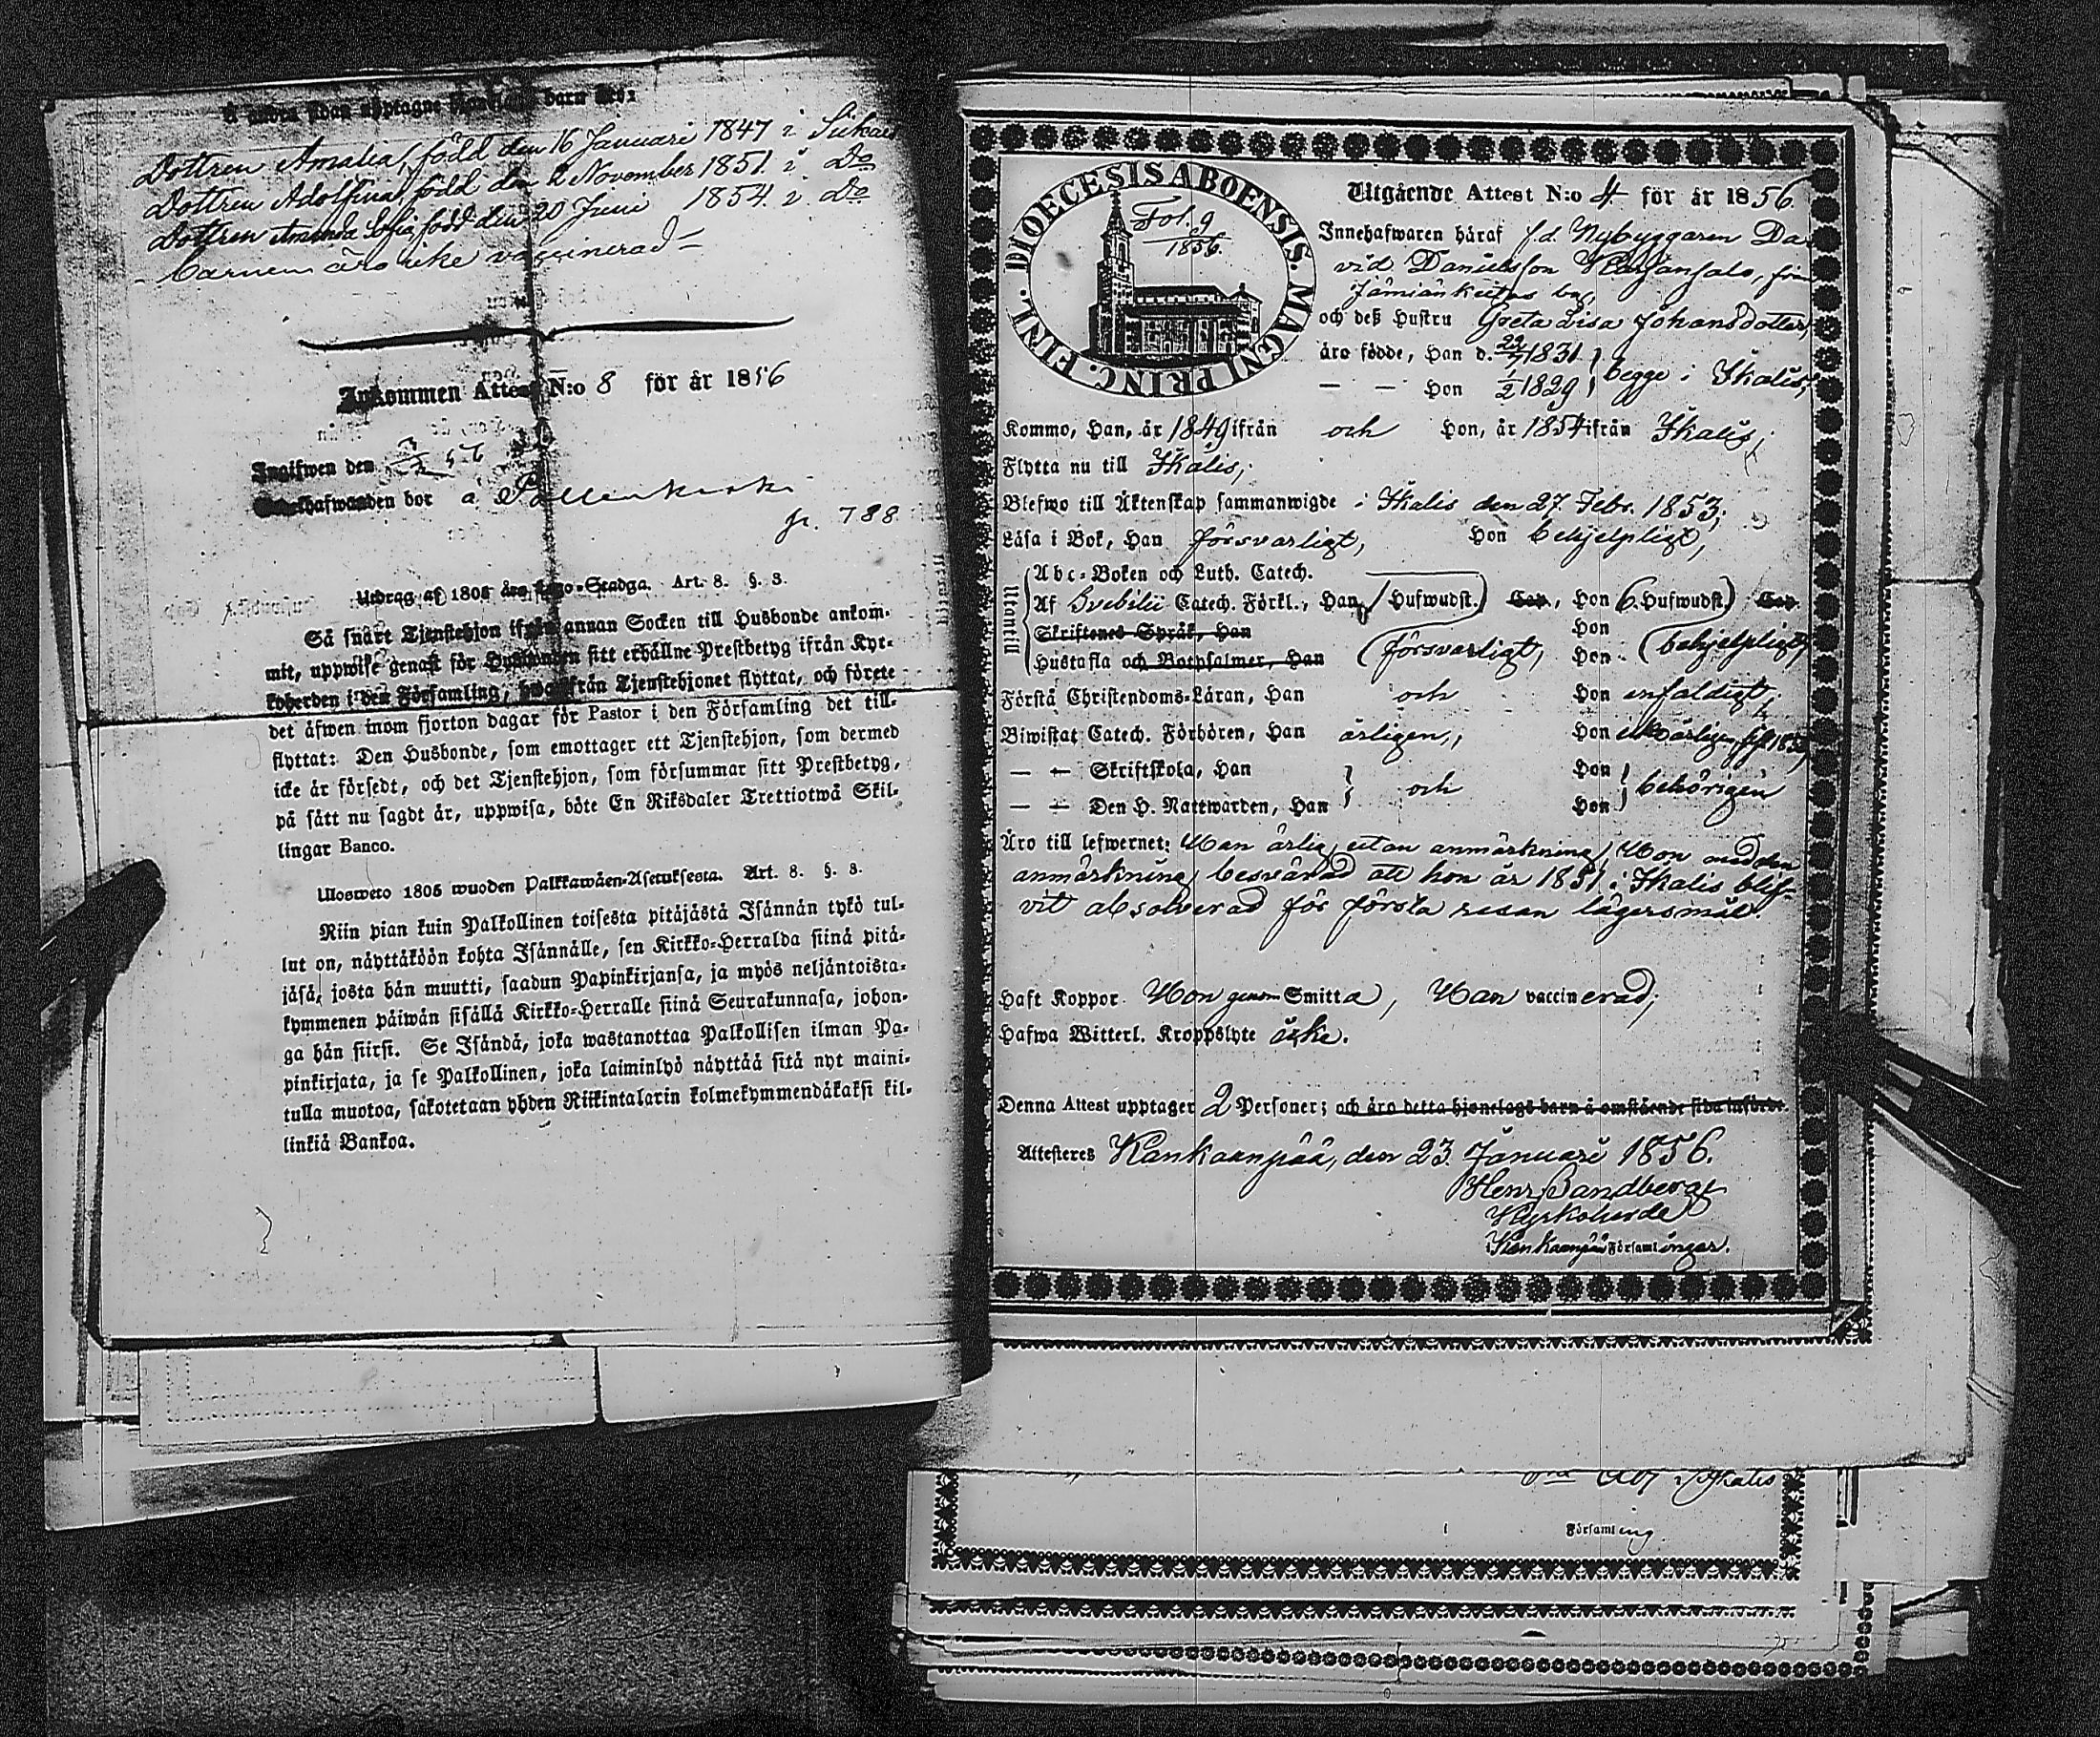 Å andra sidan upptagne barn äro:
Dottren Amalia, född den 16 Januari 1847 i
Dottren Adolfina, född den 2 November 1851. i Do
Dottren Amanda Sofia född den 20 Juni 1854. i Do
barnen äro icke vaccinerad
Inkommen Attest N:o 8 för år 1856
Ingifwen den
Innehafwanden bor å
fr. 788
Utdrag af 1805 års Lego-Stadga. Art. 8. §. 3.
Så snart Tjenstehjon ifrån annan Socken till Husbonde ankom-
mit, uppwise genast för Husbonden sitt erhållne Prestbetyg ifrån Kyr-
koherden i den Församling, hwarifrån Tjenstehjonet flyttat, och förete
det äfwen inom fjorton dagar för Pastor i den Församling det till-
flyttat: Den Husbonde, som emottager ett Tjenstehjon, som dermed
icke är försedt, och det Tjenstehjon, som försummar sitt Prestbetyg,
på sätt nu sagdt är, uppwisa, böte En Riksdaler Trettiotwå Skil-
lingar Banco.
Ulosweto 1805 wuoden Palkkawäen-Asetuksesta. Art. 8. §. 3.
Niin pian kuin Palkollinen toisesta pitäjästä Isännän tykö tul-
lut on, näyttäköön kohta Isännälle, sen Kirkko-Herralda siinä pitä-
jäsä, josta hän muutti, saadun Papinkirjansa, ja myös neljäntoista-
kymmenen päiwän sisällä Kirkko-Herralle siinä Seurakunnasa, johon-
ga hän siirsi. Se Isändä, joka wastanottaa Palkollisen ilman Pa-
pinkirjata, ja se Palkollinen, joka laiminlyö näyttää sitä nyt maini-
tulla muotoa, sakotetaan yhden Riikintalarin kolmekymmendäkaksi kil-
linkiä Bankoa.
DIOECESIS ABOENSIS. MAGNI PRINC. FINL.
Fol. 9
1856.
Utgående Attest N:o 4 för år 1856
Innehafwaren häraf f.d. Nybyggaren Da-
vid Danielsson från
Jämiänkeidas
och deß Hustru Greta Lisa Johansdotter,
äro födde, Han d. 1831 begge i Ikalis;
— — Hon 1/2 1829
Kommo, Han, år 1849 ifrån och Hon, år 1854 ifrån Ikalis;
Flytta nu till Ikalis;
Blefwo till Äktenskap sammanwigde i Ikalis den 27 Febr. 1853;
Läsa i Bok, Han försvarligt, Hon behjelpligt,
Utantill
Abc-Boken och Luth. Catech.
Af Svebilii Catech. Förkl., Han Hufwudst. Cap. Hon 6. Hufwudst. Cap.
Skriftenes Språk, Han Hon
Hustafla och Botpsalmer, Han försvarligt, Hon behjelpligt
Förstå Christendoms-Läran, Han och Hon enfaldigt;
Biwistat Catech. Förhören, Han årligen, Hon icke årligen
— — Skriftskola, Han Hon
— — Den H. Nattwarden, Han och Hon behörigen
Äro till lefwernet: Han ärlig utan anmärkning, Hon med den
anmärkning besvärad att hon år 1851 i Ikalis blif-
vit absolverad för första resan lägersmål.
Haft Koppor Hon genom Smitta, Han vaccinerad;
Hafwa Witterl. Kroppslyte icke.
Denna Attest upptager 2 Personer; och äro detta hjonelags barn å omstående sida införde.
Attesteres Kankaanpää, den 23. Januari 1856.
Henr. Sandberg
Kyrkoherde
i Kankaanpää Församlingar.
Ikalis
Församling